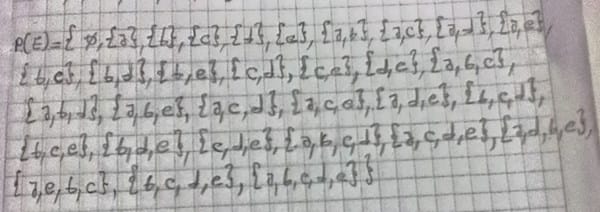 P(E)={ ∅, {a}, {b}, {c}, {d}, {e}, {a,b}, {a,c}, {a,d}, {a,e},
{b,c}, {b,d}, {b,e}, {c,d}, {c,e}, {d,e}, {a,b,c},
{a,b,d}, {a,b,e}, {a,c,d}, {a,c,e}, {a,d,e}, {b,c,d},
{b,c,e}, {b,d,e}, {c,d,e}, {a,b,c,d}, {a,c,d,e}, {a,d,b,e},
{a,e,b,c}, {b,c,d,e}, {a,b,c,d,e}}